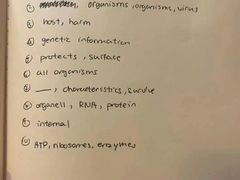 ② organisms, organisms, virus
③ host, harm
④ genetic information
⑤ protects, surface
⑥ all organisms
⑦ __, characteristics, survive
⑧ organell, RNA, protein
⑨ internal
⑩ ATP, ribosomes, enzymes